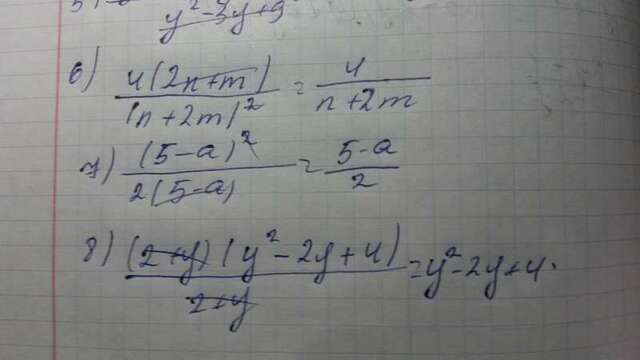 y²-3y+9
6) 4(2n+m)/(n+2m)² = 4/(n+2m)
7) (5-a)²/2(5-a) = (5-a)/2
8) (2+y)(y²-2y+4)/(2+y) = y²-2y+4.